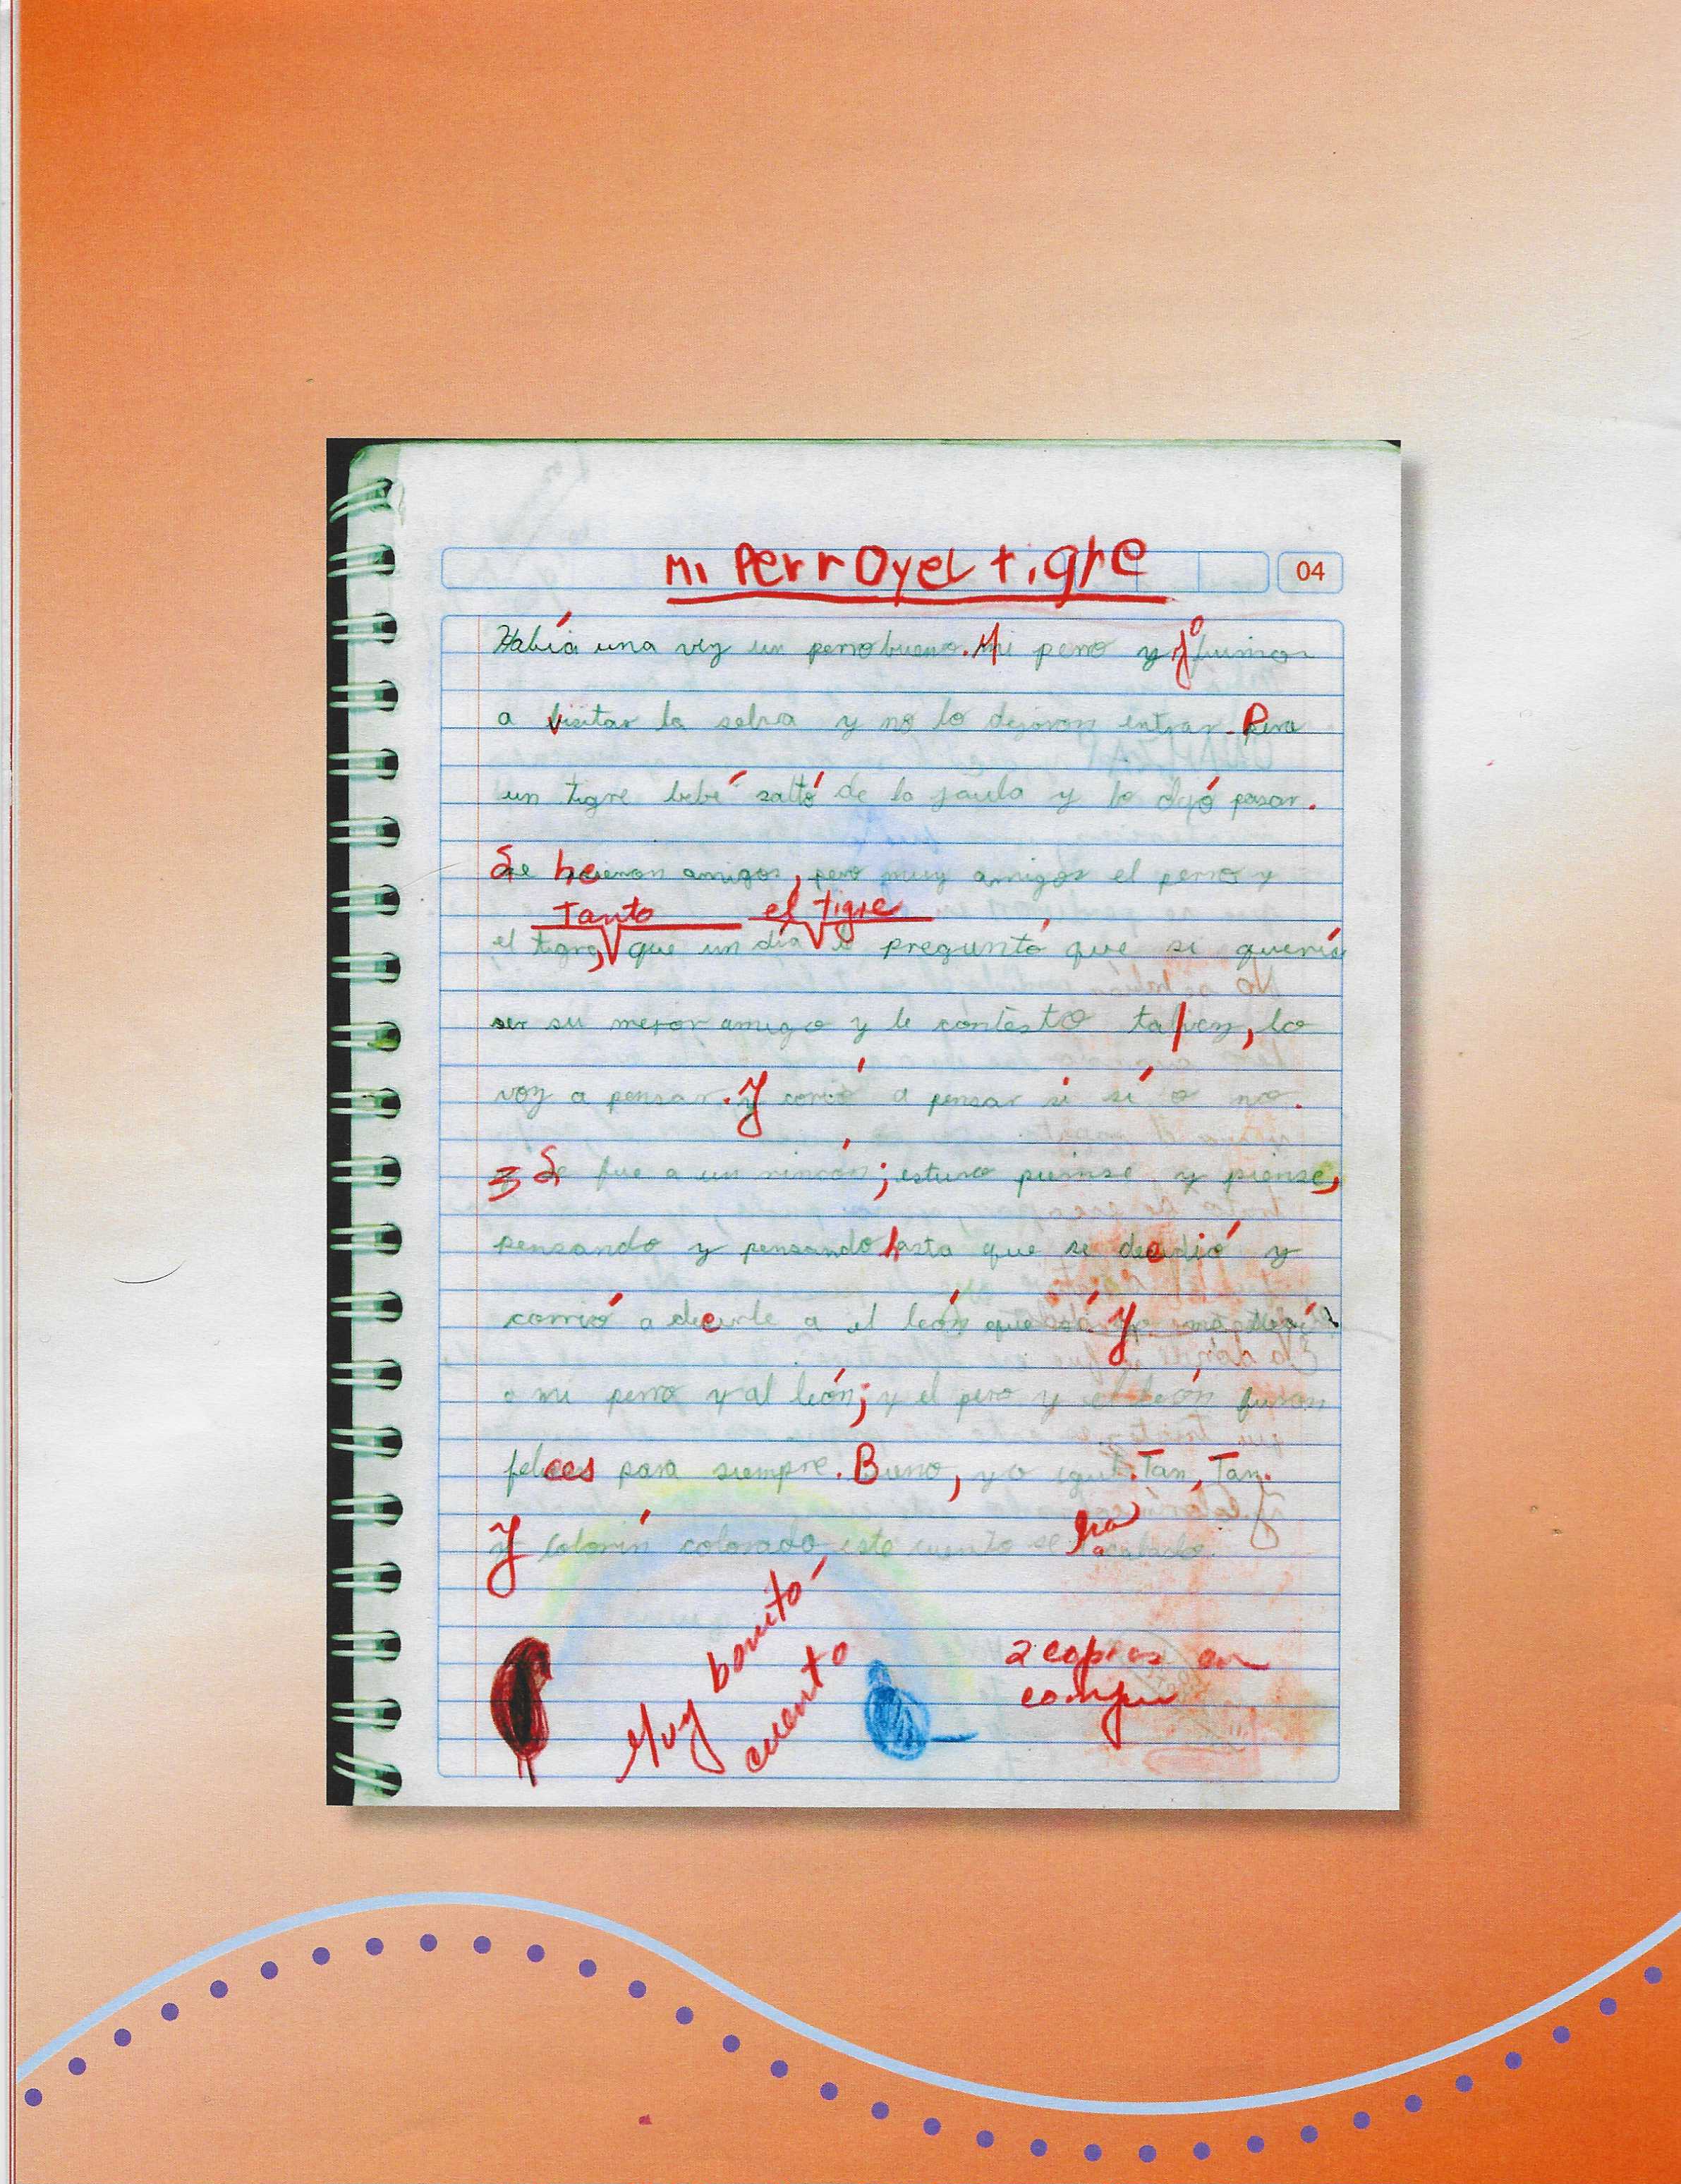 Mi Perro y el tigre
04
Había una vez un perro bueno. Mi perro y yo fuimos
a visitar la selva y no lo dejaron entrar. Pero
un tigre bebé saltó de la jaula y lo dejó pasar.
Se hicieron amigos, pero muy amigos el perro y
Tanto el tigre
el tigre, que un día le preguntó que si quería
ser su mejor amigo y le contesto tal vez, lo
voy a pensar. Y corrió a pensar si sí o no.
3 Se fue a un rincón; estuvo piense y piense,
pensando y pensando hasta que se decidió y
corrió a decirle a el león que Y
a mi perro y al león; y el perro y el león fueron
felices para siempre. Bueno, y o igual. Tan, Tan.
Y colorín colorado este cuento se ha acabado.
Muy bonito
cuento
2 copias en
compu